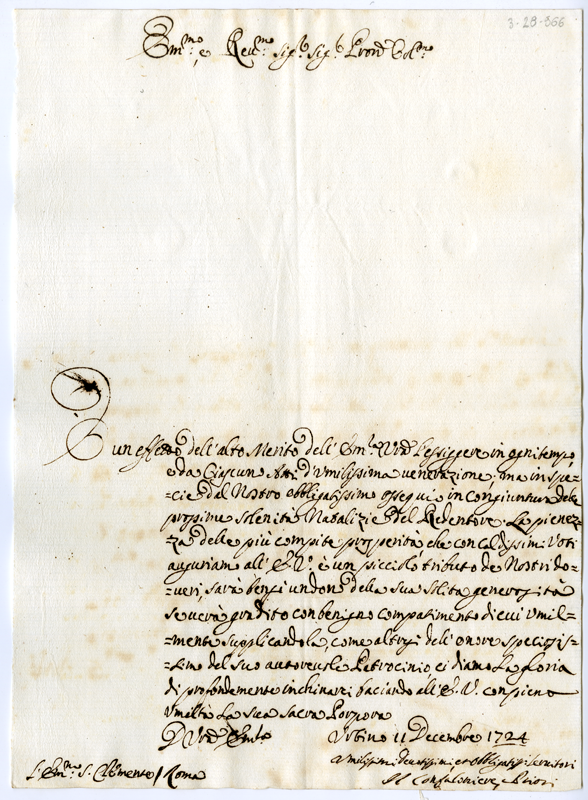 3-28-366
Em.mo e Rev.mo Sig.r Sig.r Pron Col.mo
È un effetto dell'alto Merito dell'Em.za Vra l'essiggere in ogni tempo
e da Ciascuno Atti d'Vmilissima venerazione, ma in spe-
=cie dal Nostro obbligatissimo ossequio in congiuntura delle
prossime solenità Natalizie del Redentore. La pienez-
=za delle più compite prosperità, che con caldissimi Voti
auguriamo all'E.V. è un picciolo tributo de Nostri do-
=veri, sarà bensì un dono della sua solita generosità
se verrà gradito con benigno compatimento di cui Vmil-
=mente supplicandola, come altresì dell'onore speciosis-
=simo del suo autorevole Patrocinio, ci diamo La gloria
di profondamente inchinarci baciando all'E.V. con piena
Vmiltà La sua sacra Porpora
D Vra Em.za Vrbino 11 Decembre 1724
Vmilissimi Devotissimi et obbligatissimi servitori
Il Confaloniere, e Priori
S. Em.mo S. Clemente / Roma